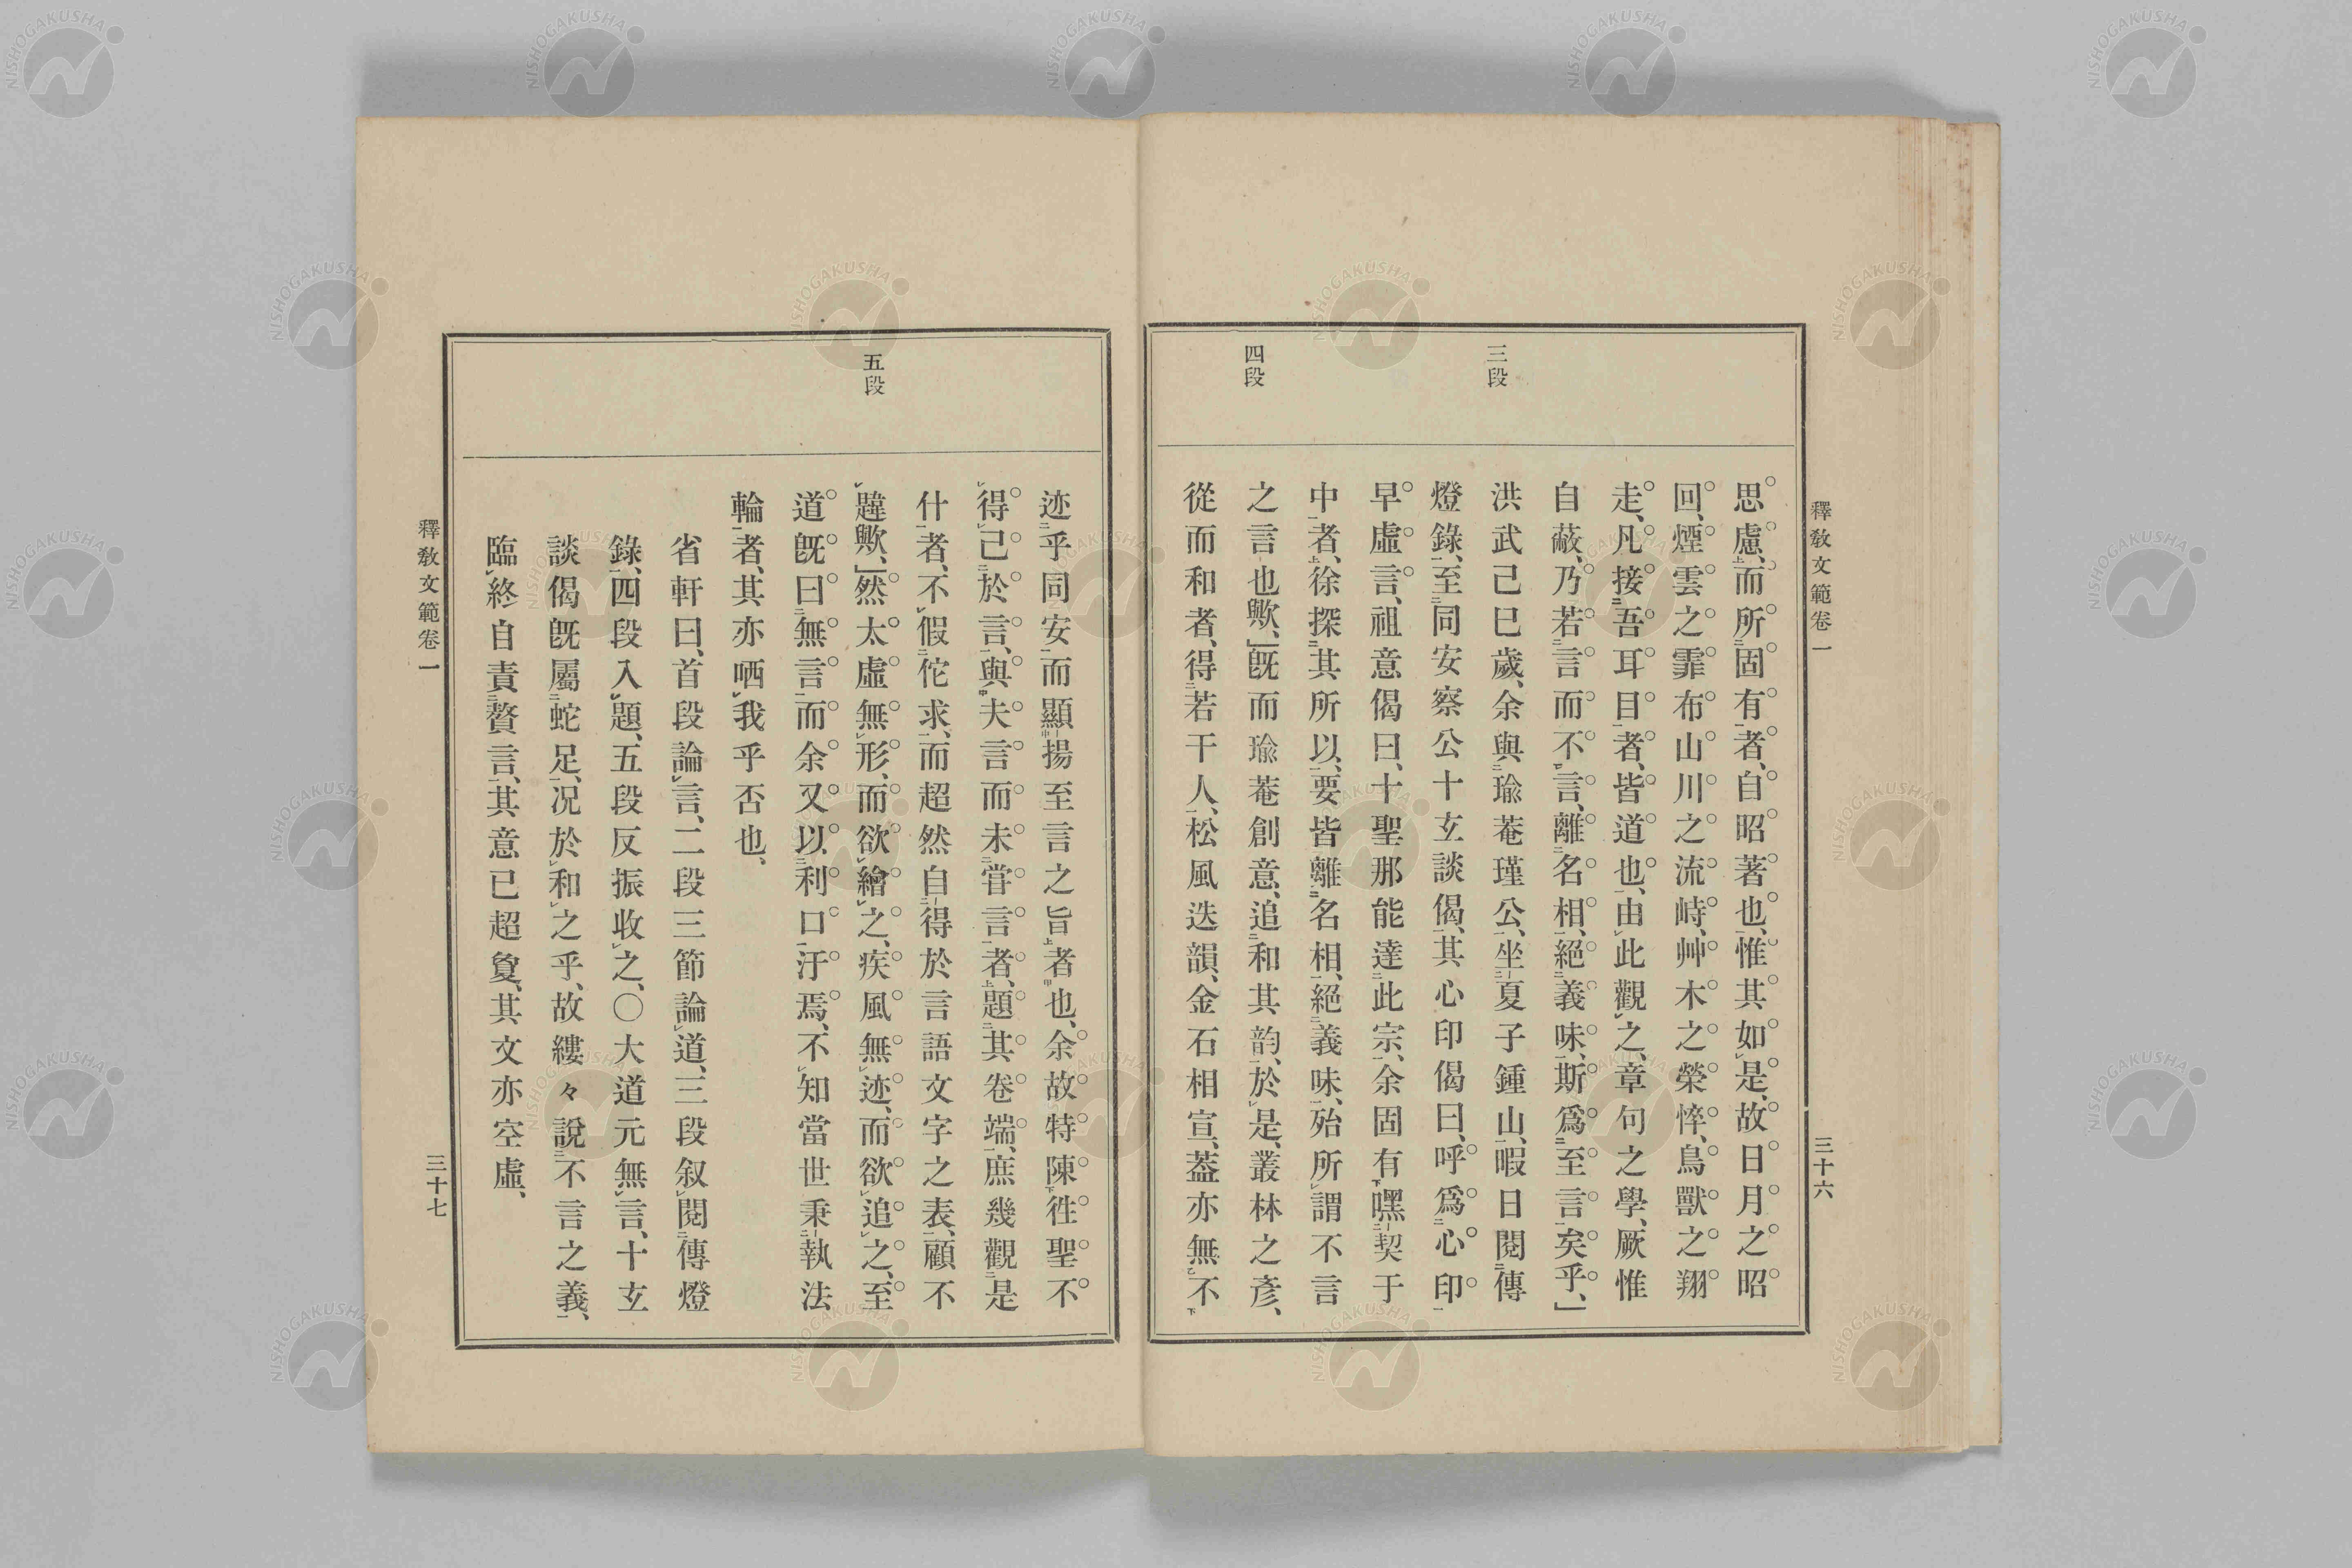 釋敎文範卷一
三十六
三段
四段
思慮、而所固有者、自昭著也、惟其如是、故日月之昭
回、煙雲之霏布、山川之流峙、艸木之榮悴、鳥獸之翔
走、凡接吾耳目者、皆道也、由此觀之、章句之學、厥惟
自蔽、乃若言而不言、離名相、絕義味、斯爲至言矣乎、」
洪武己巳歲、余與瑜菴瑾公、坐夏子鍾山、暇日閱傳
燈錄、至同安察公十玄談偈、其心印偈曰、呼爲心印
早虛言、祖意偈曰、十聖那能達此宗、余固有嘿契于
中者、徐探其所以、要皆離名相、絕義味、殆所謂不言
之言也歟、」旣而瑜菴創意、追和其韵、於是、叢林之彥、
從而和者、得若干人、松風迭韻、金石相宣、葢亦無不
五段
迹乎同安而顯揚至言之旨者也、余故特陳徃聖不
得已於言、與夫言而未甞言者、題其卷端、庶幾觀是
什者、不假佗求、而超然自得於言語文字之表、顧不
韙歟、」然太虛無形、而欲繪之、疾風無迹、而欲追之、至
道旣曰無言、而余又以利口汙焉、不知當世秉執法
輪者、其亦哂我乎否也、
省軒曰、首段論言、二段三節論道、三段叙閱傳燈
錄、四段入題、五段反振收之、〇大道元無言、十玄
談偈旣屬蛇足、况於和之乎、故縷々說不言之義、
臨終自責贅言、其意已超敻、其文亦空虛、
釋敎文範卷一
三十七
NISHOGAKUSHA